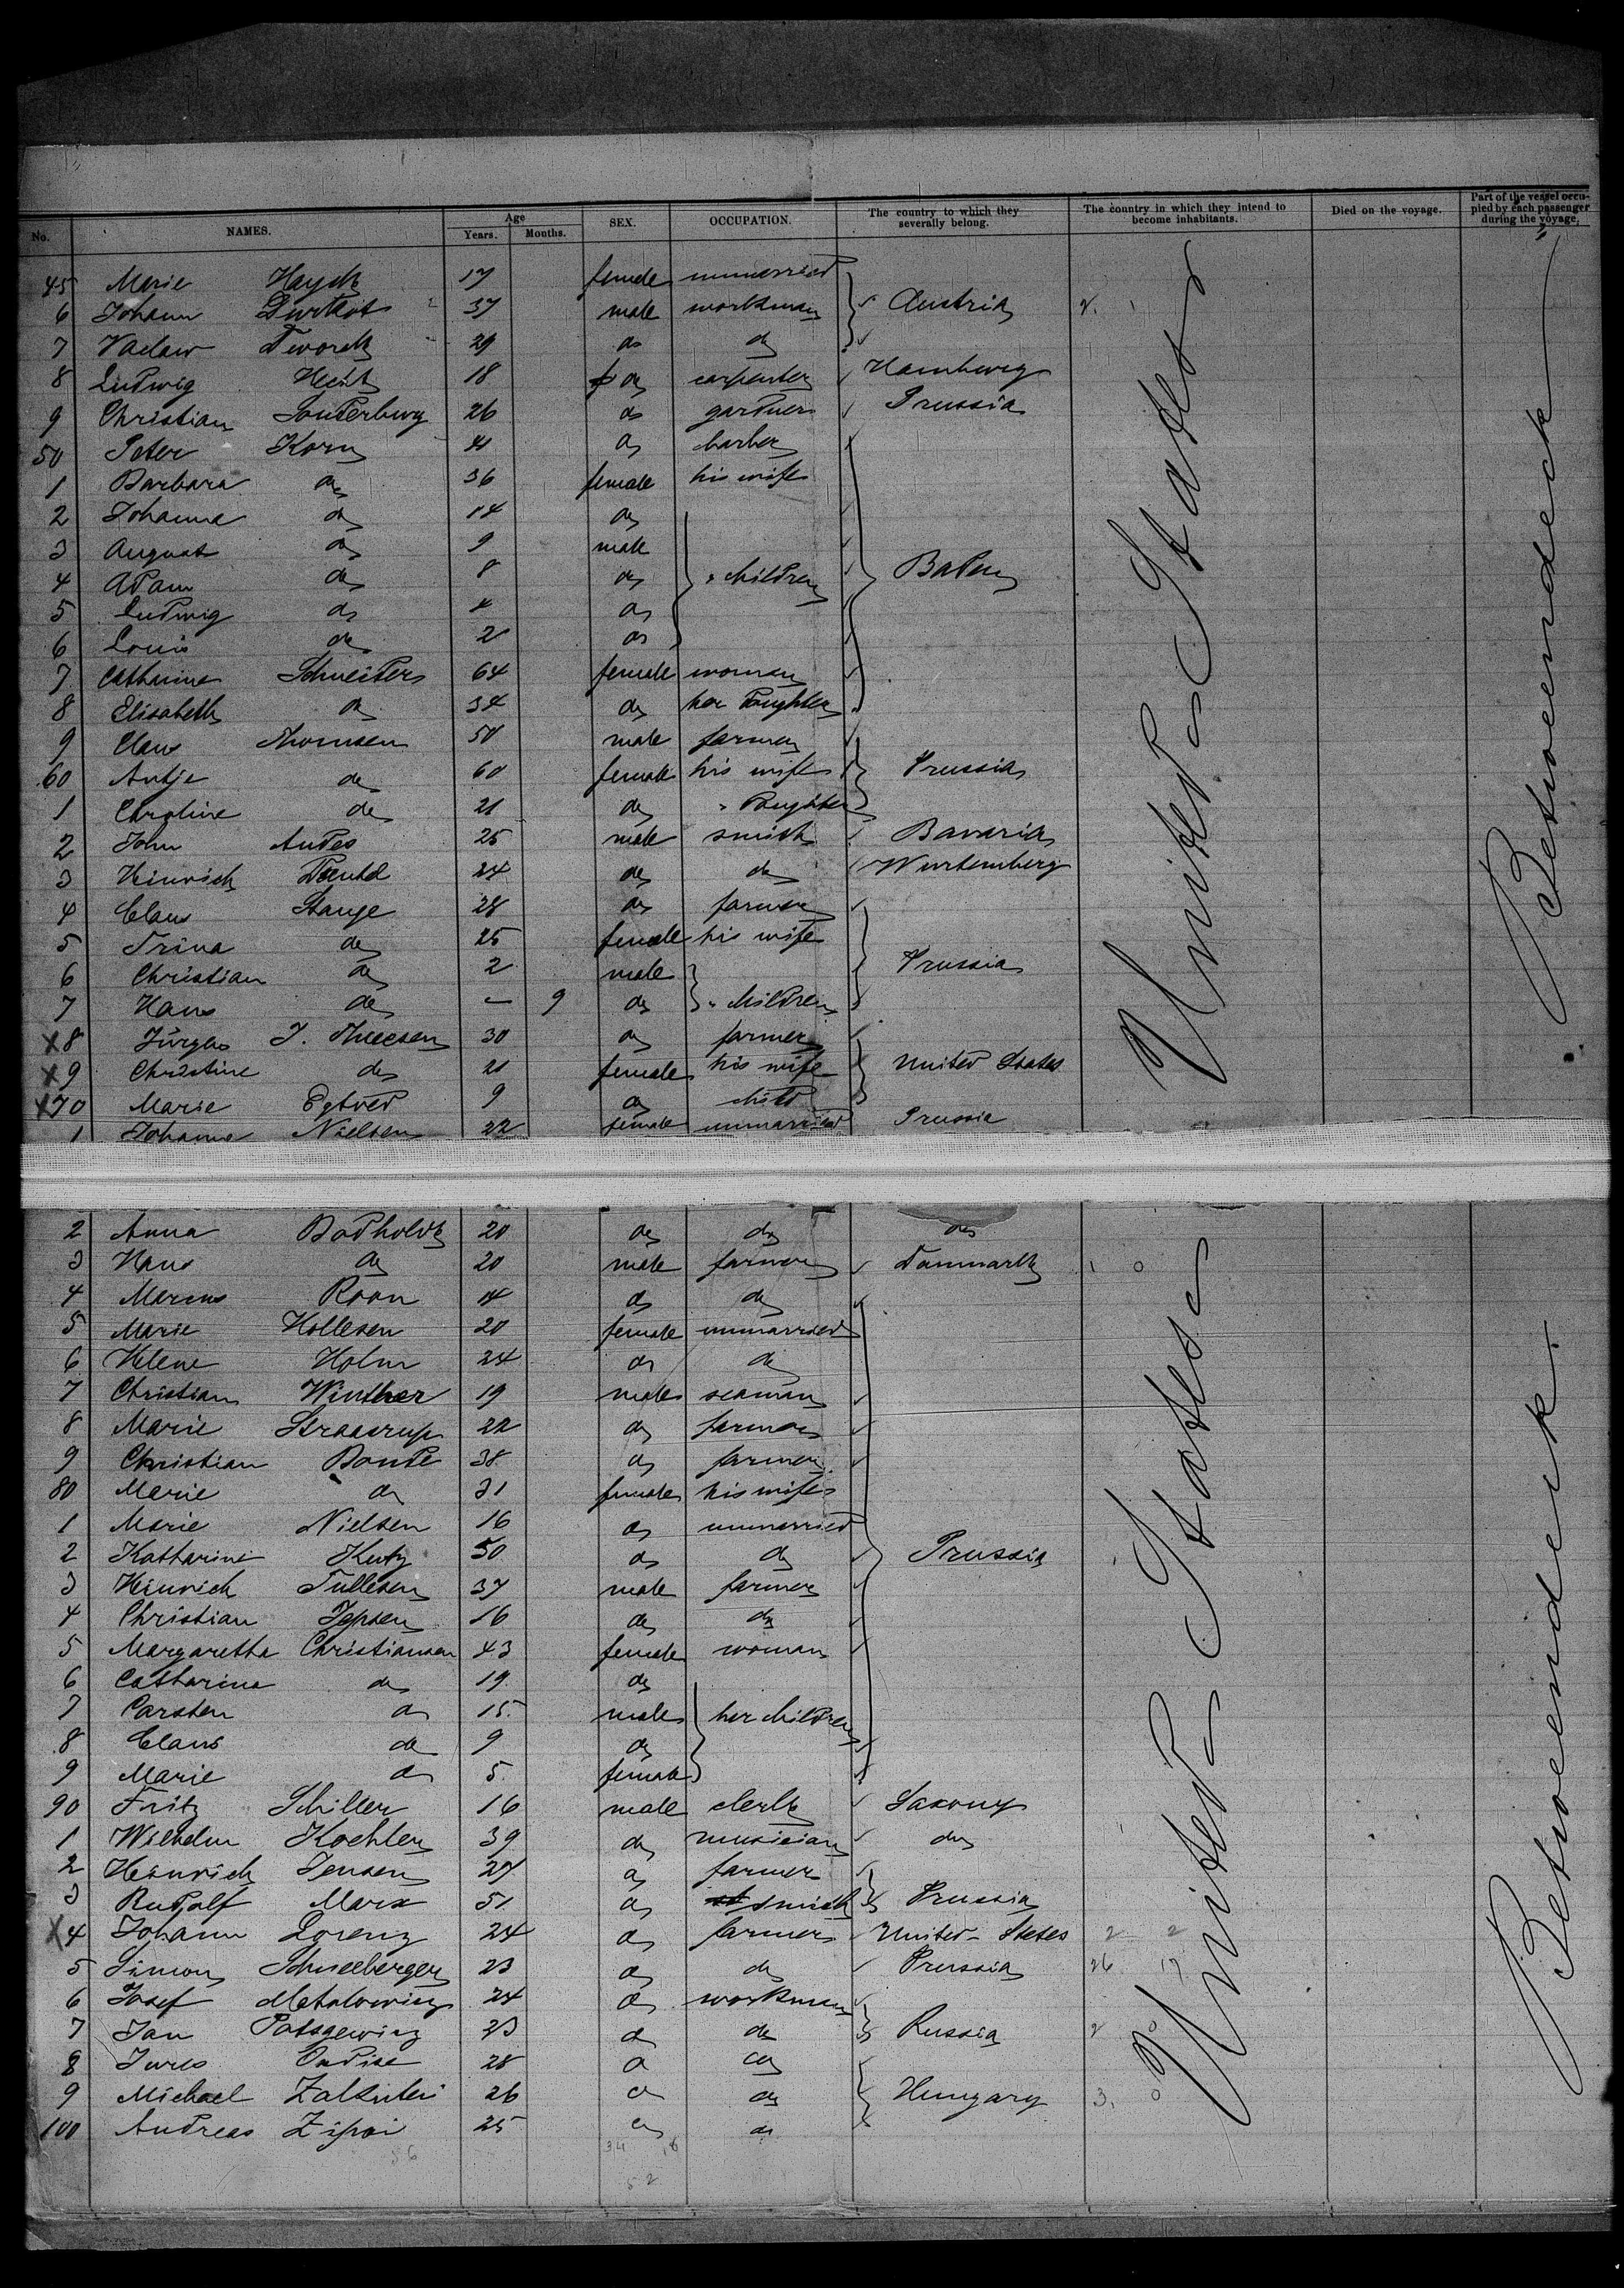 No. NAMES. Age Years. Months. SEX. OCCUPATION. The country to which they severally belong. The country in which they intend to become inhabitants. Died on the voyage. Part of the vessel occupied by each passenger during the voyage.
45 Marie 17 female unmarried
6 Johann 37 male workman Austria 2.
7 Vaclaw Dworak 29 do do
8 Ludwig Hecht 18 do carpenter Hamburg
9 Christian Sonderburg 26 do gardner Prussia
50 Peter Korn 41 do barber
1 Barbara do 36 female his wife
2 Johanna do 14 do
3 August do 9 male
4 Adam do 8 do " children Baden
5 Ludwig do 4 do
6 Louis do 2 do
7 Catharina Schneider 64 female woman
8 Elisabeth do 34 do her doughter
9 Claus Thomsen 58 male farmer
60 Antje do 60 female his wife Prussia
1 Caroline do 21 do " doughter
2 John Andes 25 male smith Bavaria
3 Heinrich 24 do do Wurtemberg
4 Claus Stange 28 do farmer
5 Trina do 25 female his wife
6 Christian do 2 male Prussia
7 Hans do — 9 do " children
X8 Jürgen J. Theesen 30 do farmer
X9 Christine do 21 female his wife United States
X70 Marie Egtved 9 do child
1 Johanna Nielsen 22 female unmarried Prussia
United States
Betweendeck
2 Anna Bodholdt 20 do do do
3 Hans do 20 male farmer Danmark 1 0
4 Marcus Roon 14 do do
5 Marie Hollesen 20 female unmarried
6 Helene Holm 24 do do
7 Christian Winther 19 male seaman
8 Marie Straarup 22 do farmer
9 Christian Bonde 38 do farmer
80 Marie do 31 female his wife
1 Marie Nielsen 16 do unmarried
2 Katharine Kutz 50 do do Prussia
3 Heinrich Tüllesen 37 male farmer
4 Christian Jepsen 16 do do
5 Margaretha Christiansen 43 female woman
6 Catharina do 19 do
7 Carsten do 15. male her children
8 Claus do 9 do
9 Marie do 5. female
90 Fritz Schiller 16 male clerk Saxony
1 Wilhelm Koehler 39 do musician do
2 Heinrich Jensen 27 do farmer
3 Rudolf Marx 51. do smith Prussia
X4 Johann Lorenz 24 do farmer United States 2 2
5 Simon Schneeberger 23 do do Prussia 26 17
6 Josef 24 do workman
7 Jan 23 do do Russia 2 0
8 28 do do
9 Michael 26 do do Hungary 3. 0
100 Andreas Zipai 25 do do
56 34 18
52
United States
Betweendeck.